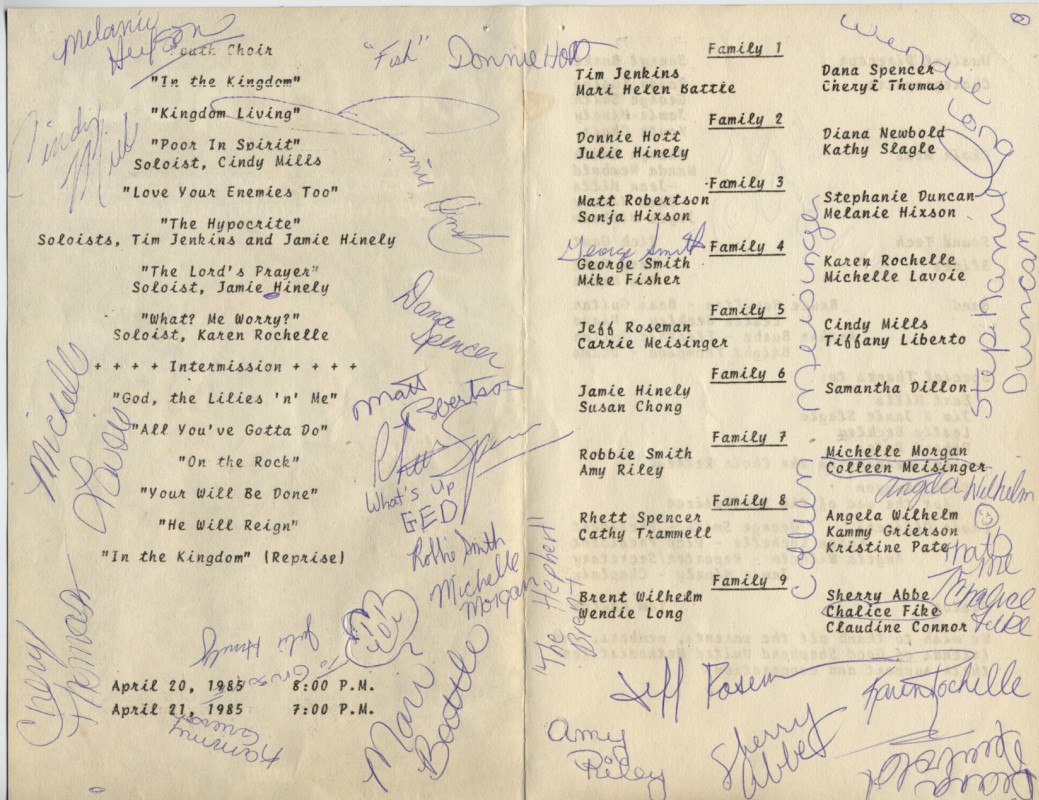 Melanie
Hixson
Youth Choir
"In the Kingdom"
"Kingdom Living"
"Poor In Spirit"
Soloist, Cindy Mills
"Love Your Enemies Too"
"The Hypocrite"
Soloists, Tim Jenkins and Jamie Hinely
"The Lord's Prayer"
Soloist, Jamie Hinely
"What? Me Worry?"
Soloist, Karen Rochelle
+ + + + Intermission + + + +
"God, the Lilies 'n' Me"
"All You've Gotta Do"
"On the Rock"
"Your Will Be Done"
"He Will Reign"
"In the Kingdom" (Reprise)
April 20, 1985 8:00 P.M.
April 21, 1985 7:00 P.M.
Cindy
"Fish"
Donnie Hott
Dana
Spencer
Matt
Robertson
Rhett Spencer
What's Up
GED
Robbie Smith
Michelle
Morgan
Michelle
Lavoie
Cheryl
Thomas
Julie Hinely
Kammy
Grierson
Mari
Battle
"The Hepher"
Brent
Family 1
Tim Jenkins Dana Spencer
Mari Helen Battle Cheryl Thomas
Family 2
Donnie Hott Diana Newbold
Julie Hinely Kathy Slagle
Family 3
Matt Robertson Stephanie Duncan
Sonja Hixson Melanie Hixson
George Smith
Family 4
George Smith Karen Rochelle
Mike Fisher Michelle Lavoie
Family 5
Jeff Roseman Cindy Mills
Carrie Meisinger Tiffany Liberto
Family 6
Jamie Hinely Samantha Dillon
Susan Chong
Family 7
Robbie Smith Michelle Morgan
Amy Riley Colleen Meisinger
Angela Wilhelm
Family 8
Rhett Spencer Angela Wilhelm
Cathy Trammell Kammy Grierson
Kristine Pate
Family 9
Brent Wilhelm Sherry Abbe
Wendie Long Chalice Fike
Claudine Connor
Wendie Long
Stephanie
Duncan
Colleen Meisinger
Chalice
Fike
Jeff Roseman
Karen Rochelle
Amy
Riley
Sherry
Abbe
Diana
Newbold